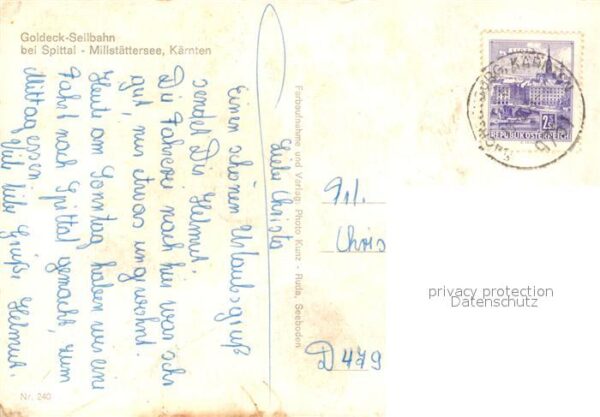 Goldeck-Seilbahn
bei Spittal - Millstättersee, Kärnten
Liebe Christa
Einen schönen Urlaubsgruß
sendet Dir Helmut.
Die Fahrerei nach hier war sehr
gut, nur etwas ungewohnt.
Heute am Sonntag haben wir eine
Fahrt nach Spittal gemacht, zum
Mittagessen.
Viele liebe Grüße Helmut.
Nr. 240
Farbaufnahme und Verlag: Photo Kunz - Ruda, Seeboden
REPUBLIK ÖSTERREICH
Frl.
Chris
D 479
privacy protection
Datenschutz